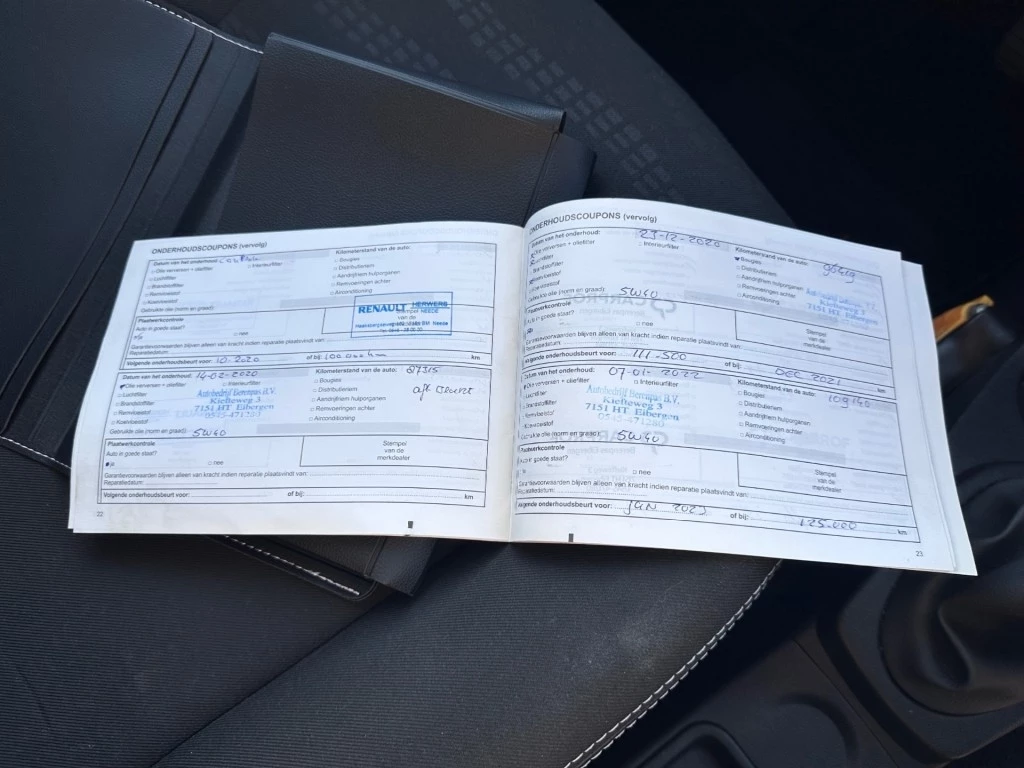 ONDERHOUDSCOUPONS (vervolg)
Datum van het onderhoud:
Kilometerstand van de auto:
□ Olie verversen + oliefilter □ Interieurfilter
□ Bougies
□ Luchtfilter
□ Distributieriem
□ Brandstoffilter
□ Aandrijfriem hulporganen
□ Remvloeistof
□ Remvoeringen achter
□ Koelvloeistof
□ Airconditioning
Gebruikte olie (norm en graad):
RENAULT HERWERS
NEEDE
Plaatwerkcontrole
Stempel
van de
Auto in goede staat?
□ nee
Garantievoorwaarden blijven alleen van kracht indien reparatie plaatsvindt van:
Reparatiedatum:
Volgende onderhoudsbeurt voor: 10-2020 of bij: km
Datum van het onderhoud: 14-02-2020
Kilometerstand van de auto: 87315
Olie verversen + oliefilter □ Interieurfilter
□ Bougies
□ Luchtfilter
□ Distributieriem
□ Brandstoffilter
□ Aandrijfriem hulporganen
□ Remvloeistof
□ Remvoeringen achter
□ Koelvloeistof
□ Airconditioning
Kiefteweg 3
7151 HT Eibergen
0545-471280
Gebruikte olie (norm en graad): 5W40
Plaatwerkcontrole
Stempel
van de
merkdealer
Auto in goede staat?
ja □ nee
Garantievoorwaarden blijven alleen van kracht indien reparatie plaatsvindt van:
Reparatiedatum:
Volgende onderhoudsbeurt voor: of bij: km
22
ONDERHOUDSCOUPONS (vervolg)
Datum van het onderhoud: 23-12-2020
Kilometerstand van de auto:
Olie verversen + oliefilter □ Interieurfilter
Bougies
Luchtfilter
□ Distributieriem
Brandstoffilter
□ Aandrijfriem hulporganen
Remvloeistof
□ Remvoeringen achter
Koelvloeistof
□ Airconditioning
Kiefteweg 3
7151 HT Eibergen
Gebruikte olie (norm en graad): 5W40
Plaatwerkcontrole
Stempel
van de
merkdealer
Auto in goede staat?
□ nee
Garantievoorwaarden blijven alleen van kracht indien reparatie plaatsvindt van:
Reparatiedatum:
Volgende onderhoudsbeurt voor: 111-500 of bij: DEC 2021 km
Datum van het onderhoud: 07-01-2022
Kilometerstand van de auto: 109140
Olie verversen + oliefilter □ Interieurfilter
□ Bougies
Luchtfilter
□ Distributieriem
Brandstoffilter
□ Aandrijfriem hulporganen
Remvloeistof
□ Remvoeringen achter
Koelvloeistof
□ Airconditioning
Kiefteweg 3
7151 HT Eibergen
0545-471280
Gebruikte olie (norm en graad): 5W40
Plaatwerkcontrole
Stempel
van de
merkdealer
Auto in goede staat?
□ nee
Garantievoorwaarden blijven alleen van kracht indien reparatie plaatsvindt van:
Reparatiedatum:
Volgende onderhoudsbeurt voor: JAN 2023 of bij: 125.000 km
23